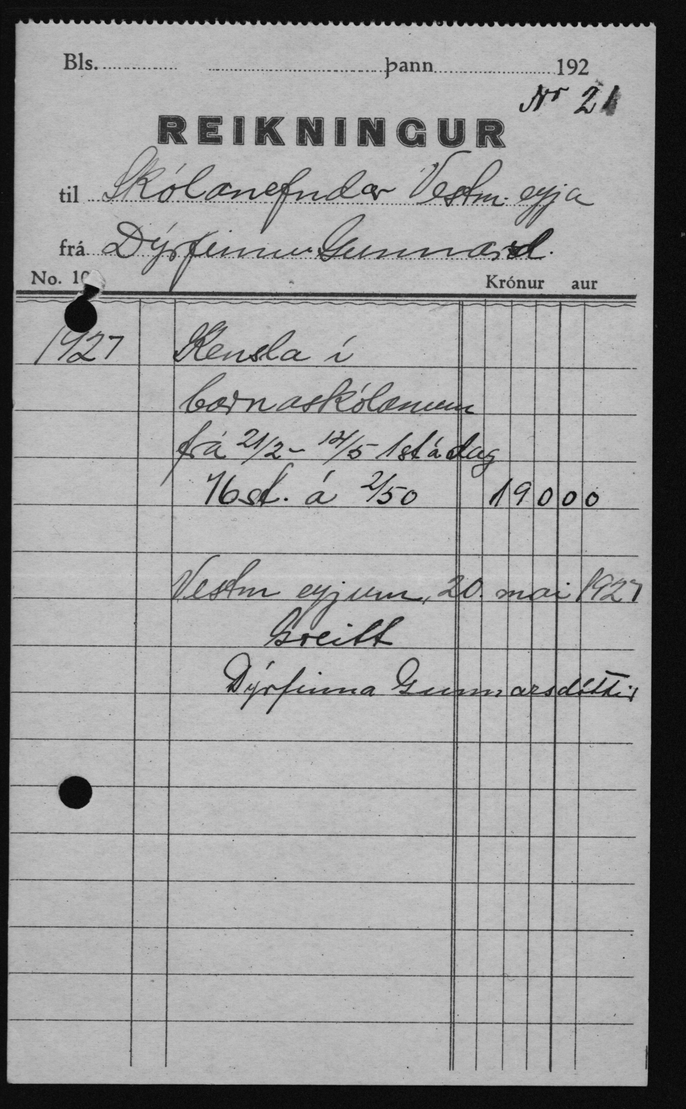 Bls. þann 192
Nr 21
REIKNINGUR
til Skólanefndar Vestm.eyja
frá Dýrfinnu Gunnarsd.
No. 10 Krónur aur
1927 Kensla í
barnaskólanum
frá 21/2 - 12/5 1 st á dag
76 st. á 2/50 190 00
Vestm eyjum, 20. mai 1927
Greitt
Dýrfinna Gunnarsdóttir